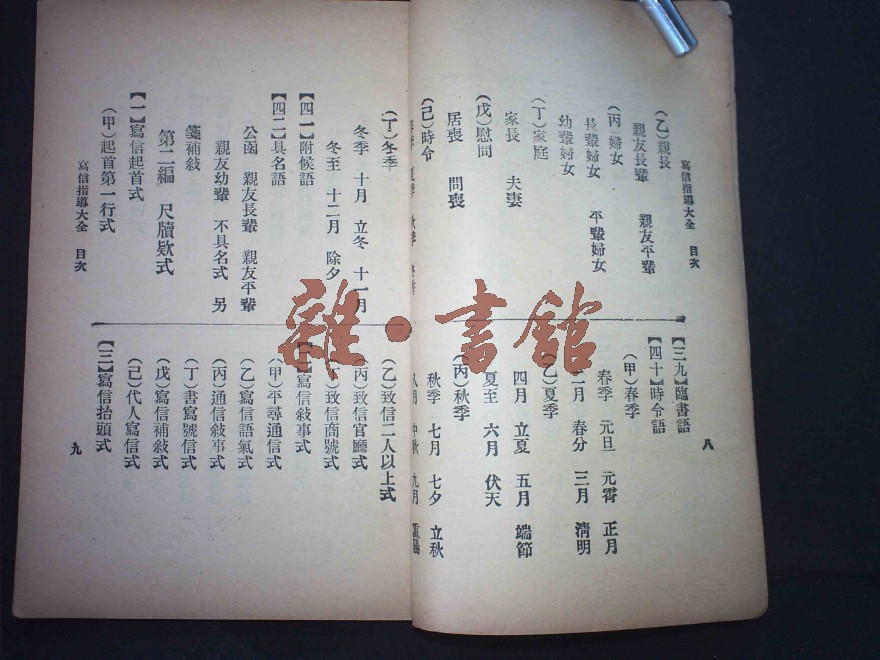 寫信指導大全 目次
八
(乙)親長
親友長輩 親友平輩
(丙)婦女
長輩婦女 平輩婦女
幼輩婦女
(丁)家庭
家長 夫妻
(戊)慰問
居喪 問喪
(己)時令
春季 夏季 秋季 冬季
【三九】臨書語
【四十】時令語
(甲)春季
春季 元旦 元霄 正月
二月 春分 三月 清明
(乙)夏季
四月 立夏 五月 端節
夏至 六月 伏天
(丙)秋季
秋季 七月 七夕 立秋
八月 中秋 九月 重陽
(丁)冬季
冬季 十月 立冬 十一月
冬至 十二月 除夕
【四一】附候語
【四二】具名語
公函 親友長輩 親友平輩
親友幼輩 不具名式 另
箋補敍
第二編 尺牘欵式
【一】寫信起首式
(甲)起首第一行式
(乙)致信二人以上式
(丙)致信官廳式
(丁)致信商號式
寫信敍事式
(甲)平尋通信式
(乙)寫信語氣式
(丙)通信敍事式
(丁)書寫號信式
(戊)寫信補敍式
(己)代人寫信式
【三】寫信抬頭式
寫信指導大全 目次
九
雜·書館